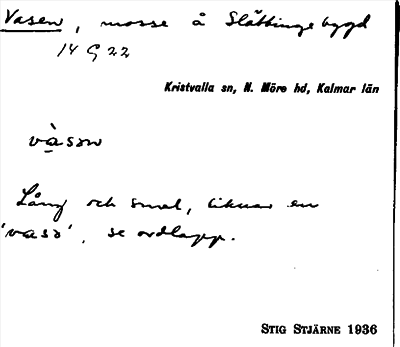 Vasen, mosse å Slättingebygd
14 G 22
Kristvalla sn, N. Möre hd, Kalmar län
vàsən
Lång och smal, liknar en
'vase', se ordlapp.
STIG STJÄRNE 1936